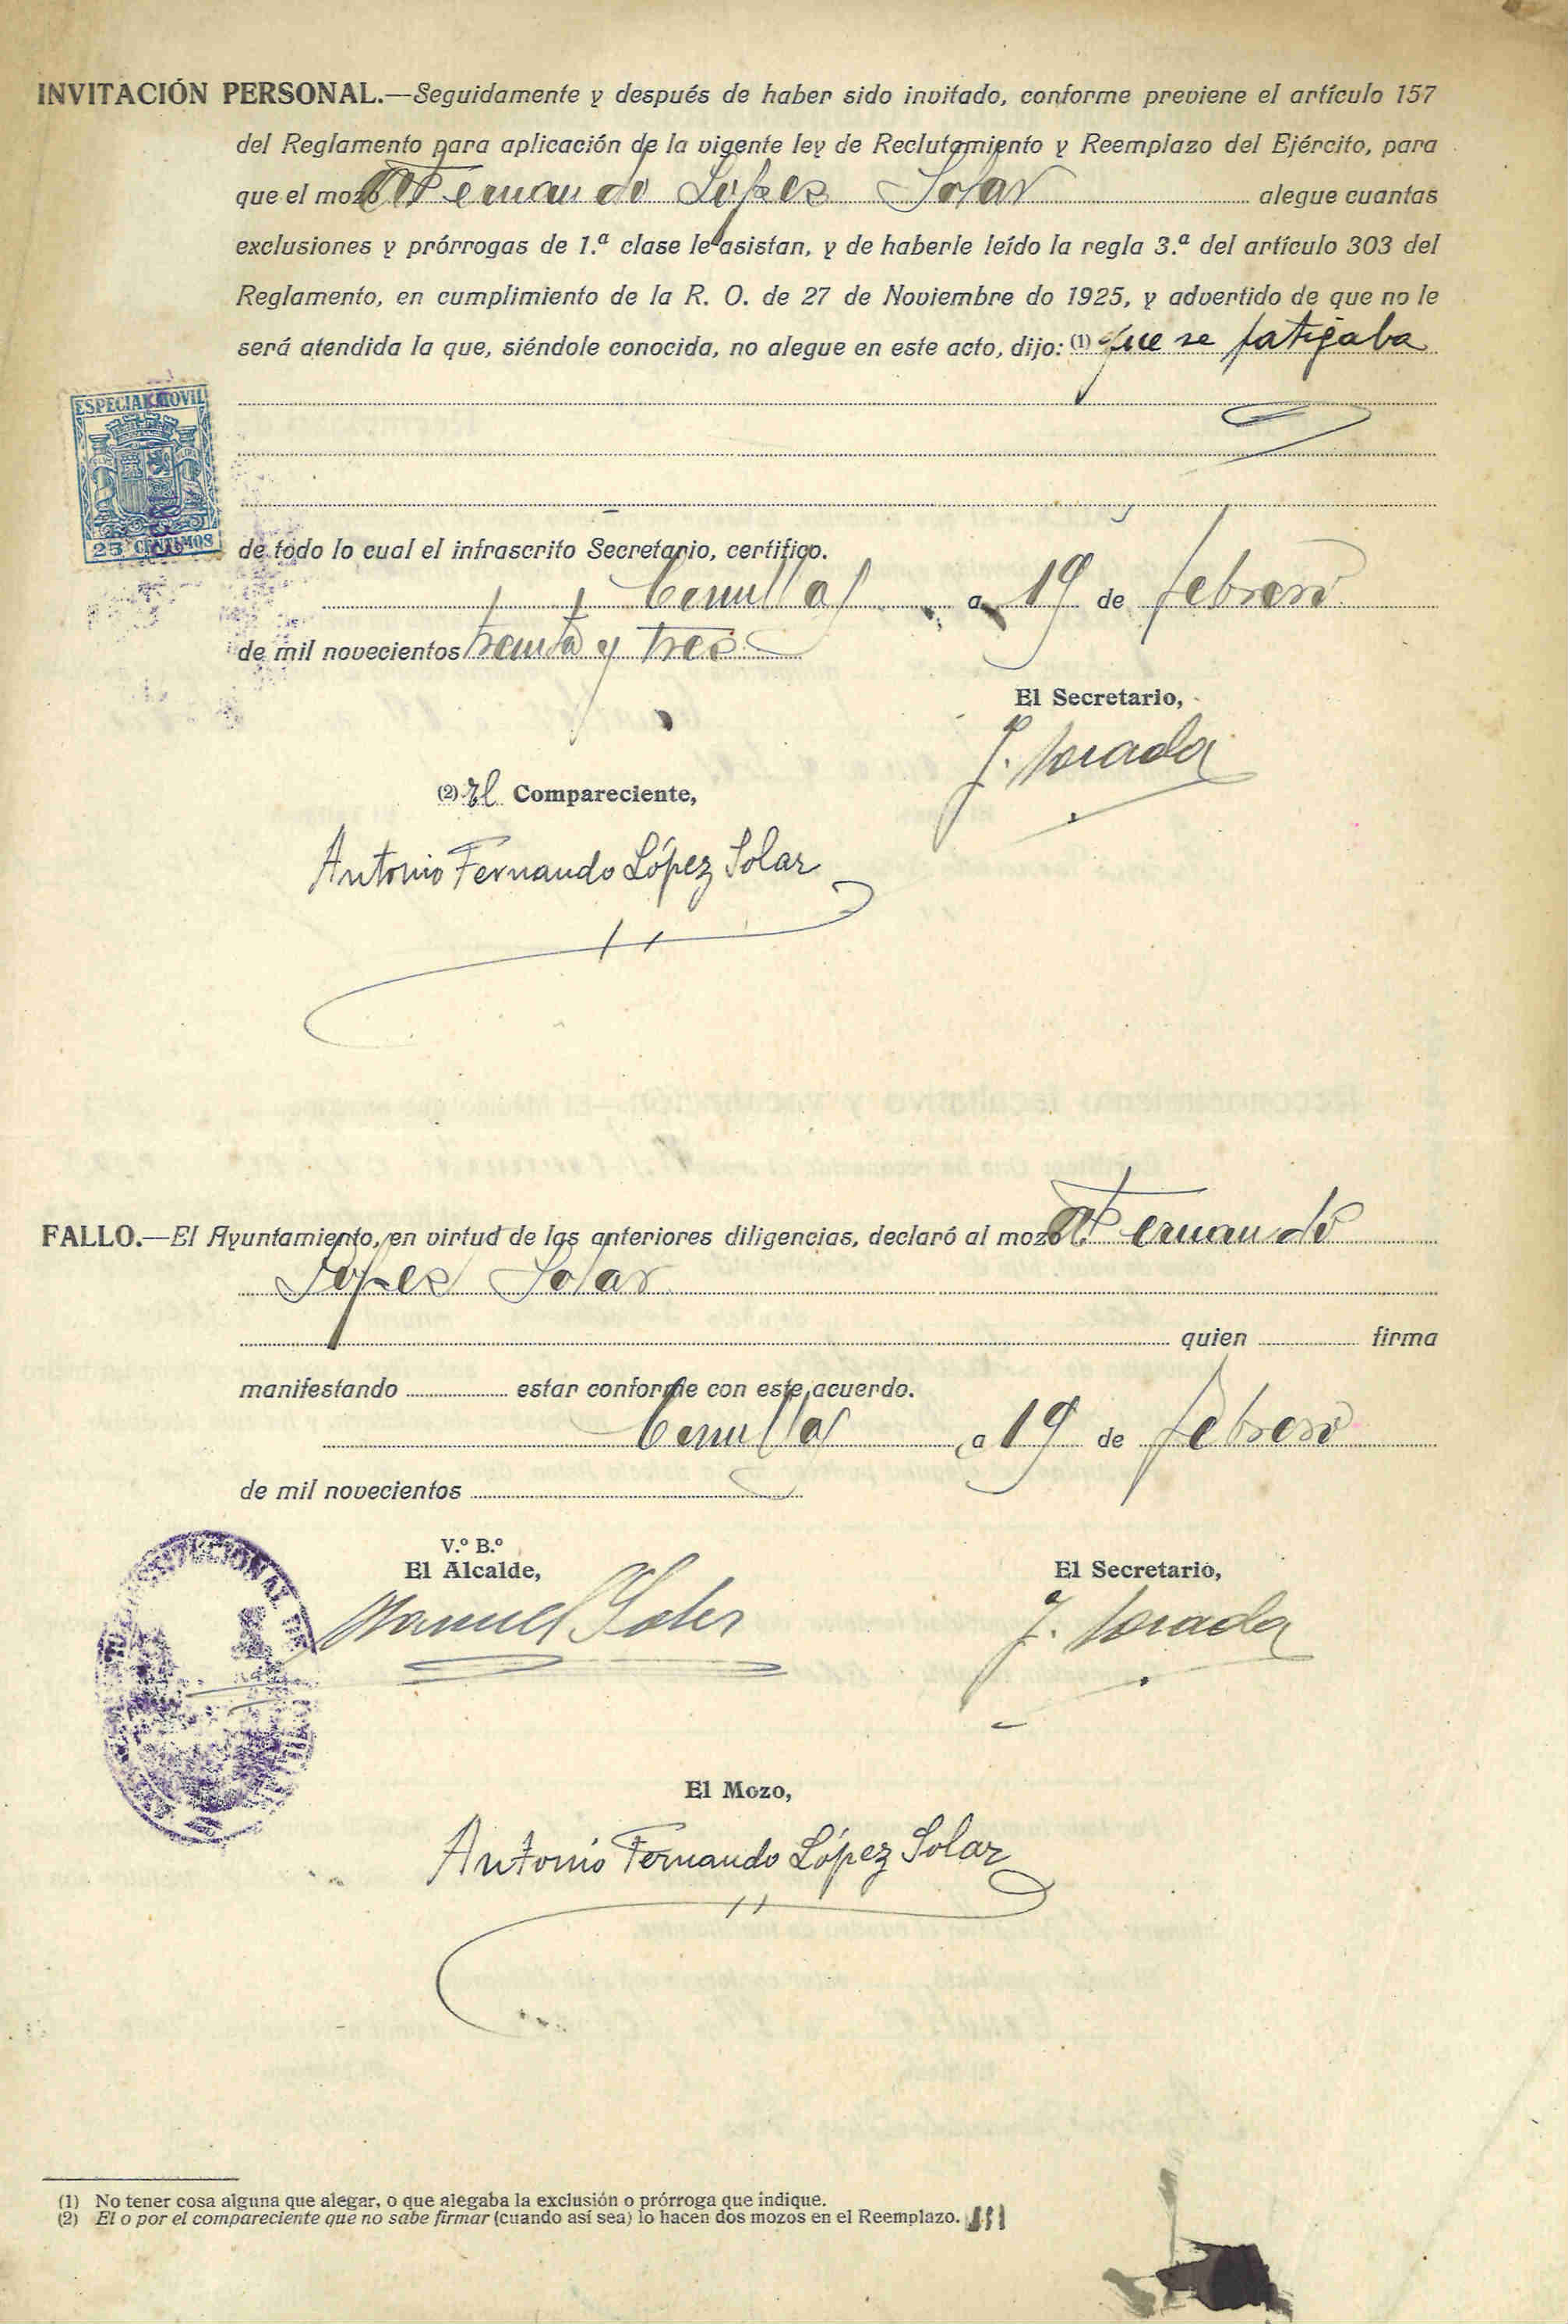 INVITACIÓN PERSONAL.—Seguidamente y después de haber sido invitado, conforme previene el artículo 157
del Reglamento para aplicación de la vigente ley de Reclutamiento y Reemplazo del Ejército, para
que el mozo Fernando Lopez Solar alegue cuantas
exclusiones y prórrogas de 1.ª clase le asistan, y de haberle leído la regla 3.ª del artículo 303 del
Reglamento, en cumplimiento de la R. O. de 27 de Noviembre do 1925, y advertido de que no le
será atendida la que, siéndole conocida, no alegue en este acto, dijo: (1) que se fatigaba
ESPECIAL MOVIL
25 CENTIMOS
de todo lo cual el infrascrito Secretario, certifico.
Comillas a 19 de febrero
de mil novecientos treinta y tres
El Secretario,
(2) El Compareciente,
Antonio Fernando López Solar
FALLO.—El Ayuntamiento, en virtud de las anteriores diligencias, declaró al mozo Fernando
Lopez Solar
quien firma
manifestando estar conforme con este acuerdo.
Comillas a 19 de febrero
de mil novecientos
V.º B.º
El Alcalde,
El Secretario,
Manuel
El Mozo,
Antonio Fernando López Solar
(1) No tener cosa alguna que alegar, o que alegaba la exclusión o prórroga que indique.
(2) El o por el compareciente que no sabe firmar (cuando así sea) lo hacen dos mozos en el Reemplazo.